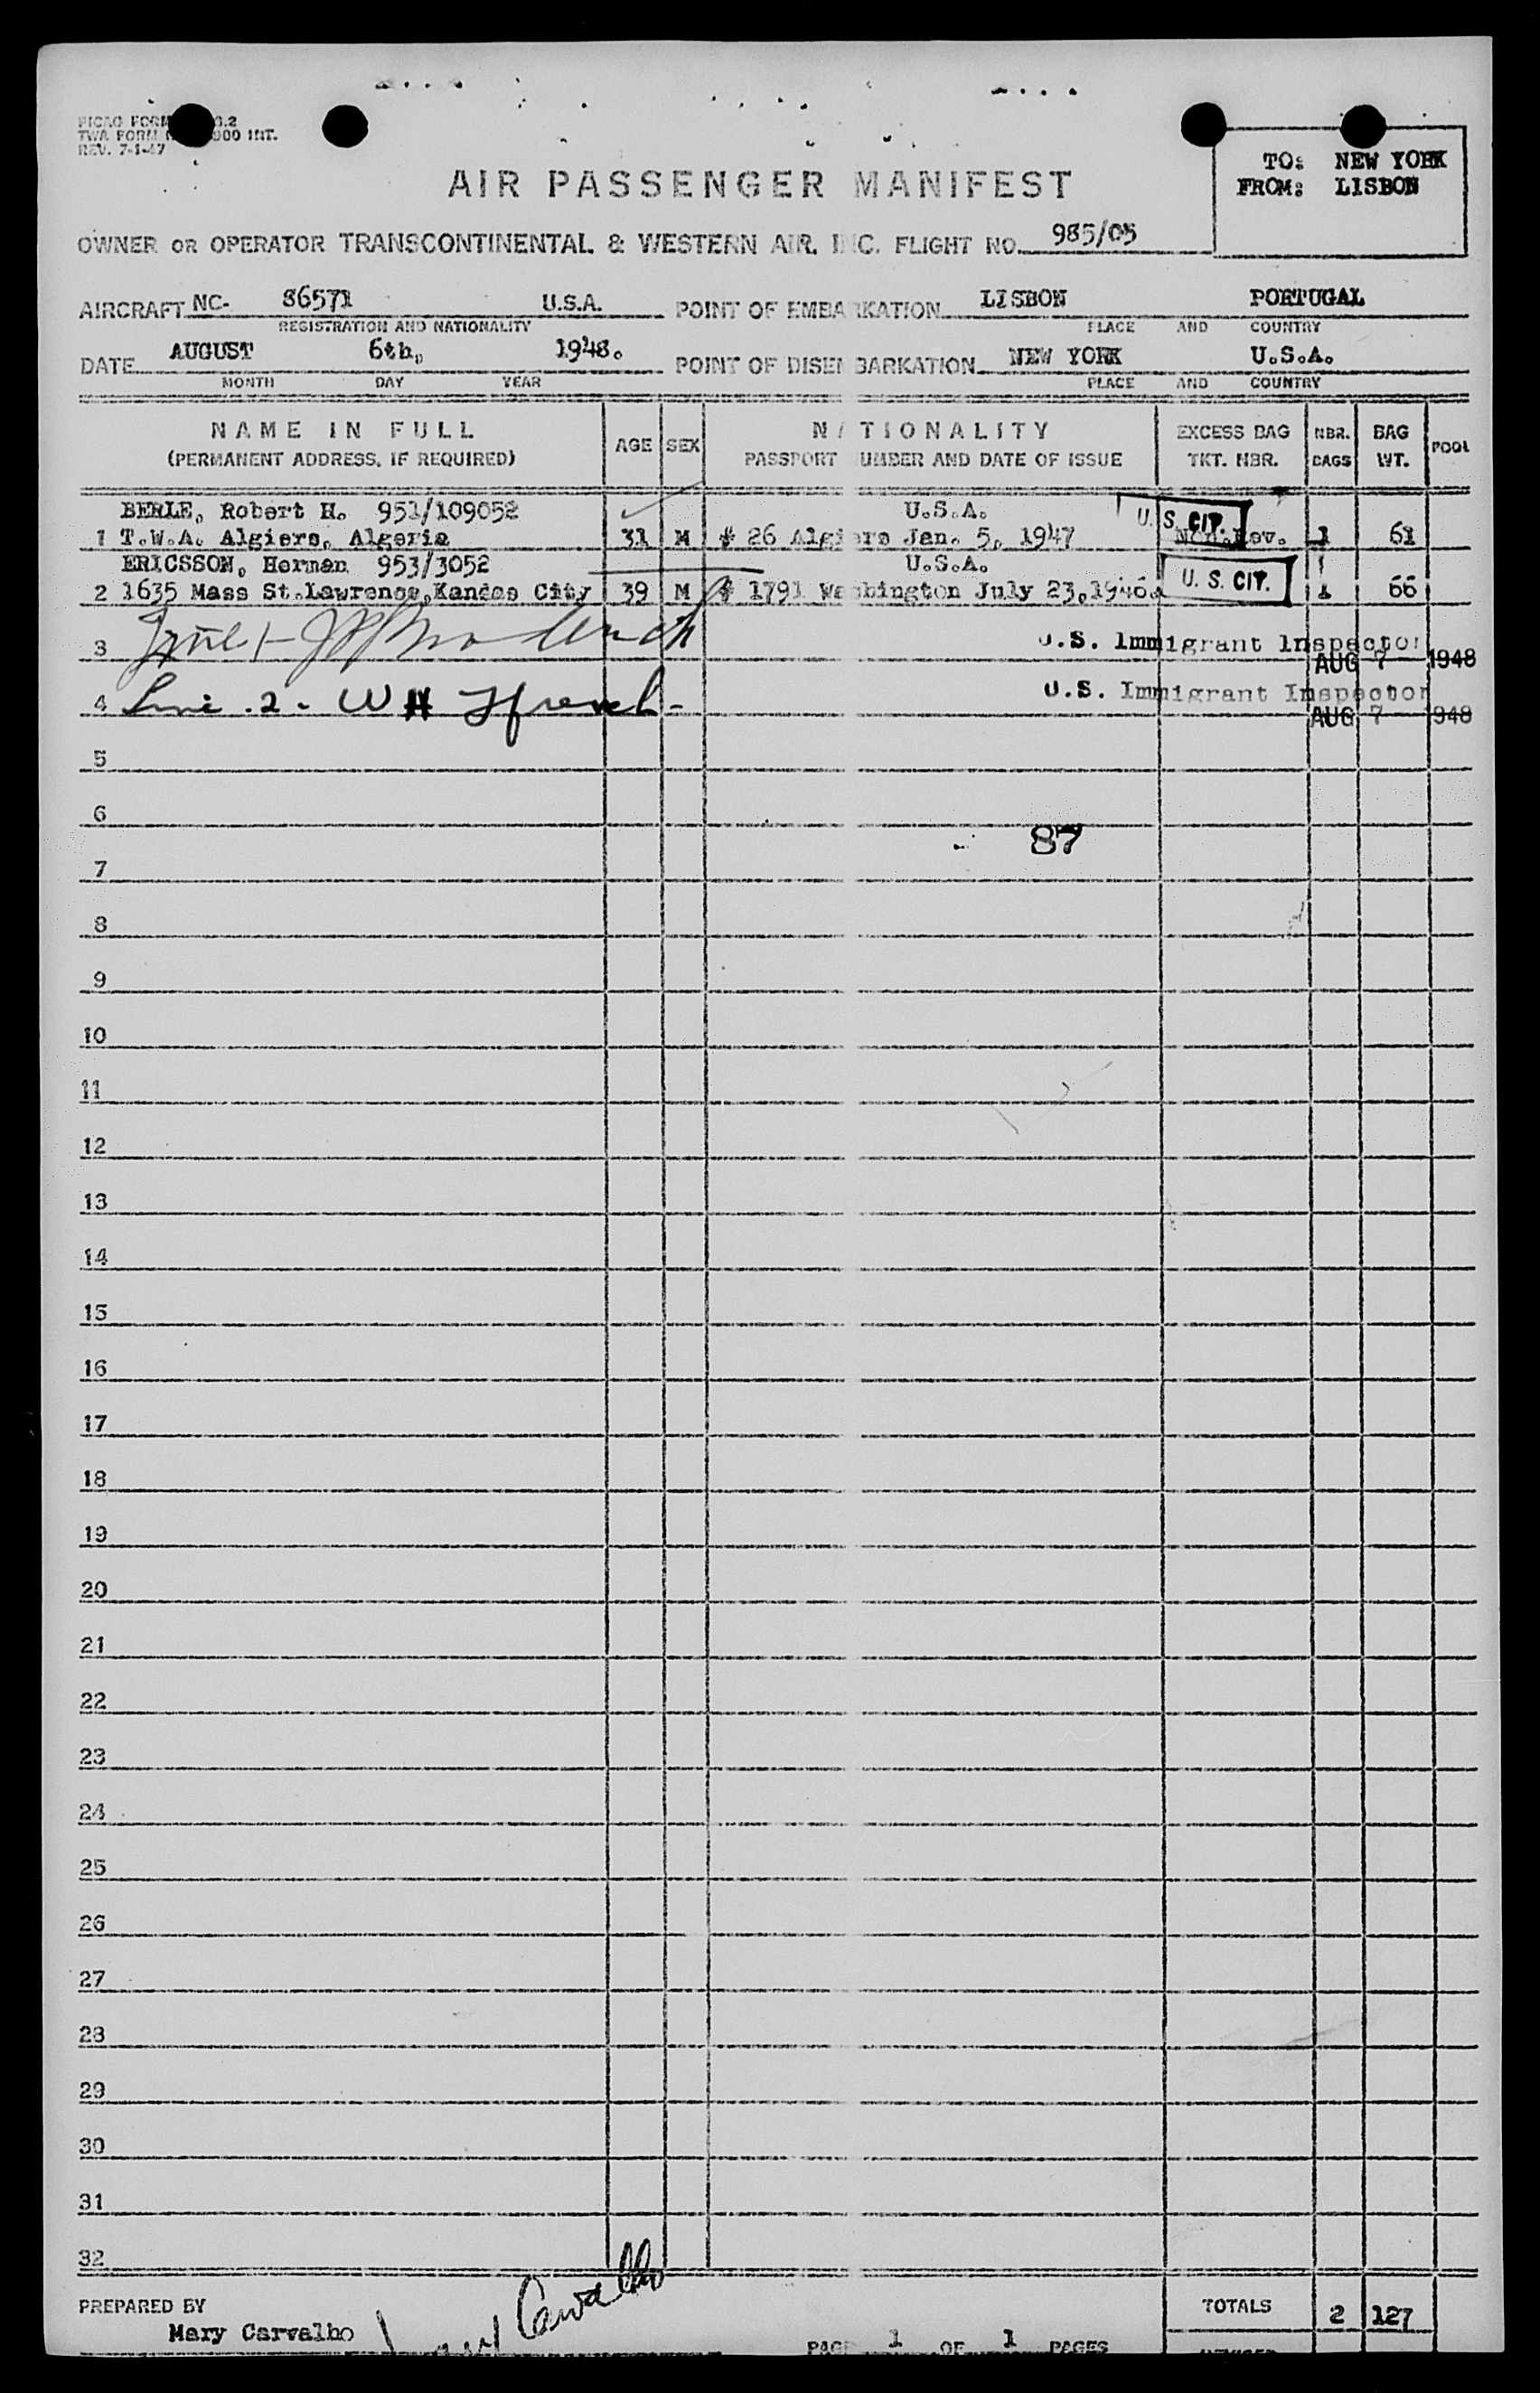 PICAO FORM .2
TWA FORM 900 INT.
REV. 7-1-47
TO: NEW YORK
FROM: LISBON
AIR PASSENGER MANIFEST
OWNER OR OPERATOR TRANSCONTINENTAL & WESTERN AIR, INC. FLIGHT NO. 985/05
AIRCRAFT NC- 86571 U.S.A. POINT OF EMBARKATION LISBON PORTUGAL
REGISTRATION AND NATIONALITY PLACE AND COUNTRY
DATE AUGUST 6th, 1948. POINT OF DISEMBARKATION NEW YORK U.S.A.
MONTH DAY YEAR PLACE AND COUNTRY
NAME IN FULL AGE SEX NATIONALITY EXCESS BAG NBR. BAG POOL
(PERMANENT ADDRESS, IF REQUIRED) PASSPORT NUMBER AND DATE OF ISSUE TKT. NBR. BAGS WT.
BERLE, Robert H. 951/109052 U.S.A. U.S. CIT.
1 T.W.A. Algiers, Algeria 31 M # 26 Algiers Jan. 5, 1947 Non.Rev. 1 61
ERICSSON, Herman 953/3052 U.S.A.
2 1635 Mass St.Lawrence,Kansas City 39 M # 1791 Washington July 23,1946. U. S. CIT. 1 66
3 U.S. Immigrant Inspector
AUG 7 1948
4 Line .2. W H French - U.S. Immigrant Inspector
AUG 7 1948
5
6
87
7
8
9
10
11
12
13
14
15
16
17
18
19
20
21
22
23
24
25
26
27
28
29
30
31
32
PREPARED BY TOTALS 2 127
Mary Carvalho Mary Carvalho
PAGE 1 OF 1 PAGES